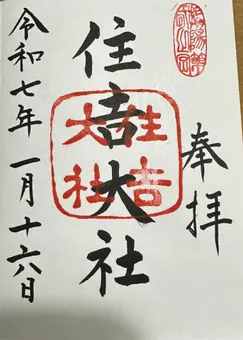 奉拝
住吉大社
住吉大社
令和七年一月十六日